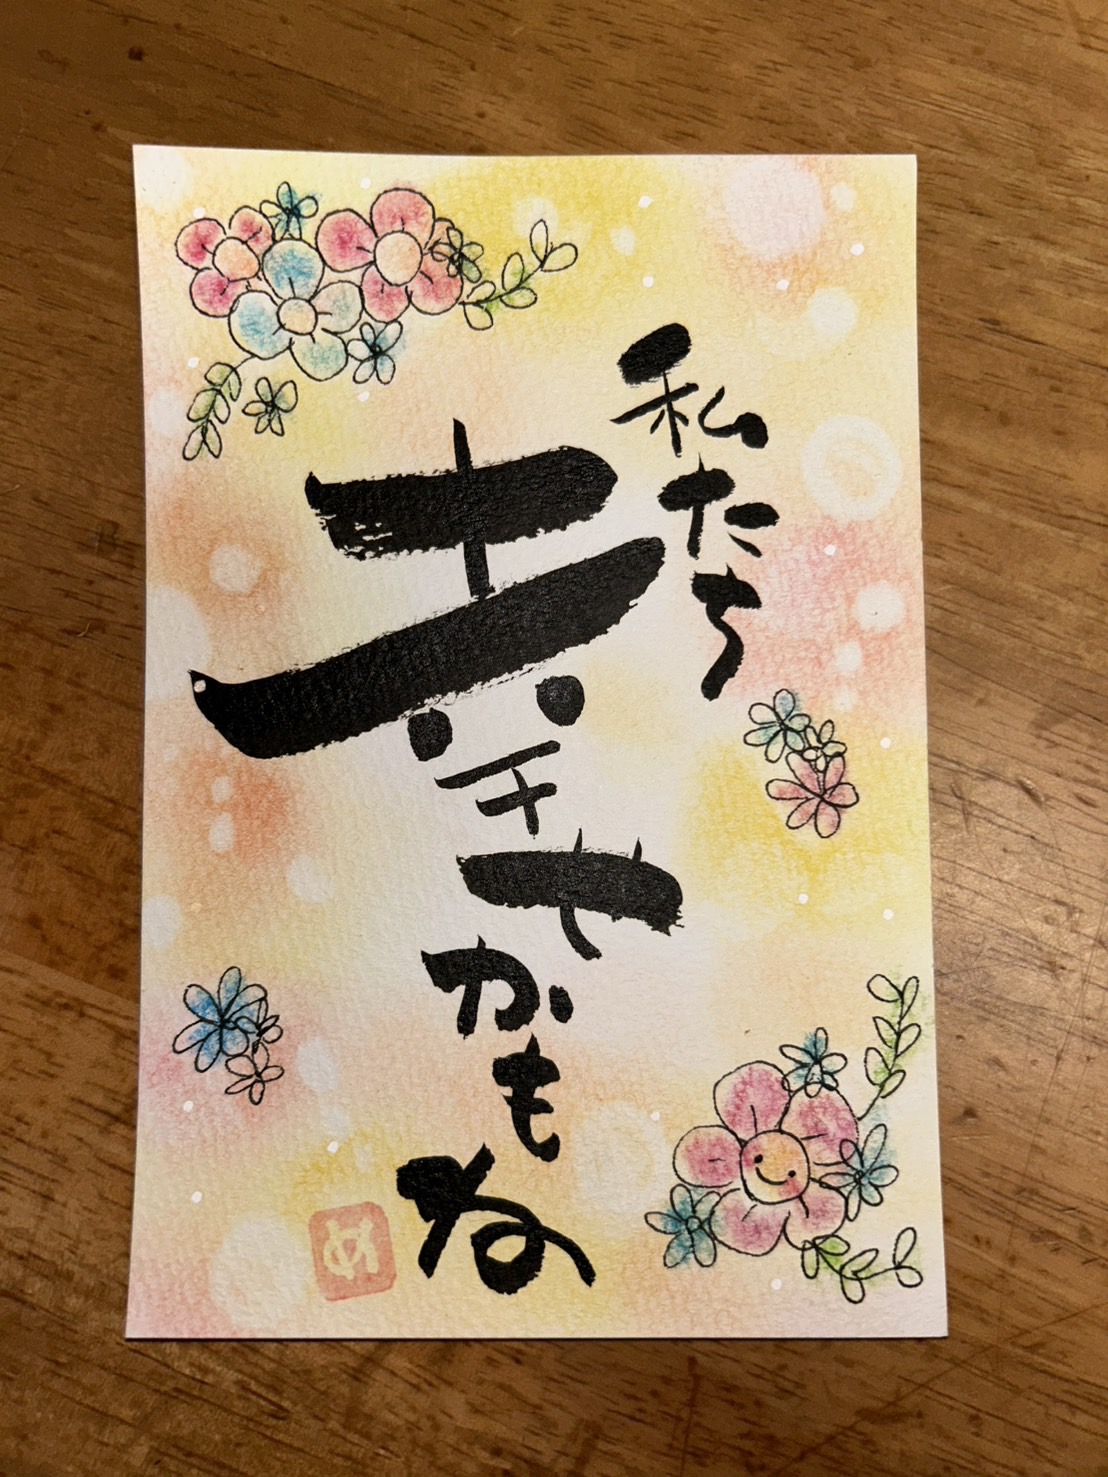 私たち
幸せ
かもね